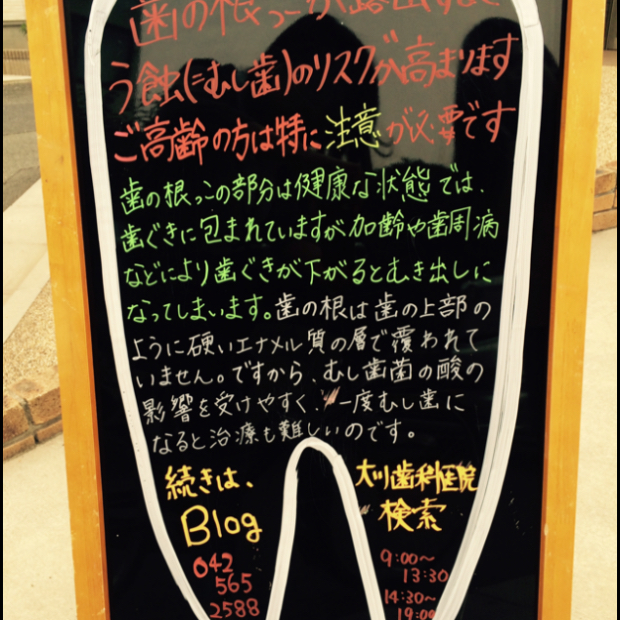 歯の根っこが露出すると
う蝕(=むし歯)のリスクが高まります
ご高齢の方は特に注意が必要です
歯の根っこの部分は健康な状態では、
歯ぐきに包まれていますが加齢や歯周病
などにより歯ぐきが下がるとむき出しに
なってしまいます。歯の根は歯の上部の
ように硬いエナメル質の層で覆われて
いません。ですから、むし歯菌の酸の
影響を受けやすく、一度むし歯に
なると治療も難しいのです。
続きは、
Blog
042
565
2588
大川歯科医院
検索
9:00〜
13:30
14:30〜
19:00